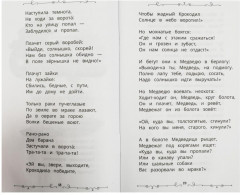 Наступила темнота,
Не ходи за ворота:
Кто на улицу попал —
Заблудился и пропал.
Плачет серый воробей:
«Выйди, солнышко, скорей!
Нам без солнышка обидно —
В поле зёрнышка не видно!»
Плачут зайки
На лужайке:
Сбились, бедные, с пути,
Им до дому не дойти.
Только раки пучеглазые
По земле во мраке лазают,
Да в овраге за горою
Волки бешеные воют.
Рано-рано
Два барана
Застучали в ворота:
Тра-та-та и тра-та-та!
«Эй вы, звери, выходите,
Крокодила победите,
Чтобы жадный Крокодил
Солнце в небо воротил!»
Но мохнатые боятся:
«Где нам с этаким сражаться!
Он и грозен и зубаст,
Он нам солнца не отдаст!»
И бегут они к Медведю в берлогу:
«Выходи-ка ты, Медведь, на подмогу.
Полно лапу тебе, лодырю, сосать,
Надо солнышко идти выручать!»
Но Медведю воевать неохота:
Ходит-ходит он, Медведь, круг болота,
Он и плачет, Медведь, и ревёт,
Медвежат он из болота зовёт:
«Ой, куда вы, толстопятые, сгинули?
На кого вы меня, старого, кинули?»
А в болоте Медведица рыщет,
Медвежат под корягами ищет:
«Куда вы, куда вы пропали?
Или в канаву упали?
Или шальные собаки
Вас разорвали во мраке?»